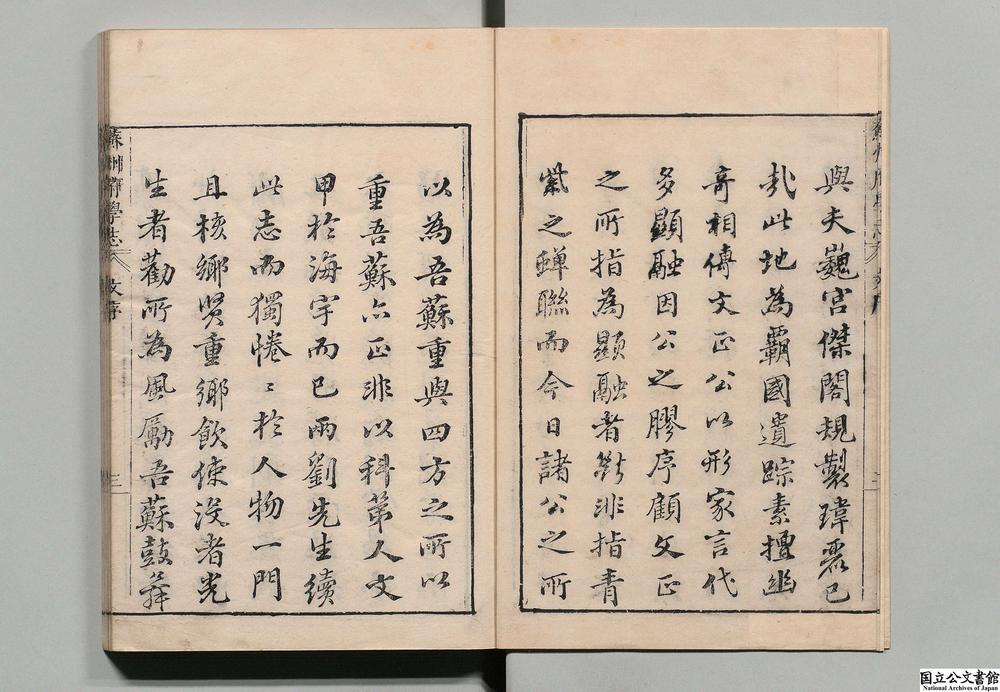 與夫巍宮傑閣規製瑋麗已
哉此地為霸國遺踪素擅幽
奇相傳文正公以形家言代
多顯融因公之膠序顧文正
之所指為顯融者斷非指青
紫之蟬聯而今日諸公之所
以為吾蘇重與四方之所以
重吾蘇亦正非以科第人文
甲於海宇而已兩劉先生續
此志而獨惓〻於人物一門
且核鄉賢重鄉飲使沒者光
生者勸所為風厲吾蘇鼓舞
蘇州府學志
序
三
国立公文書館
National Archives of Japan